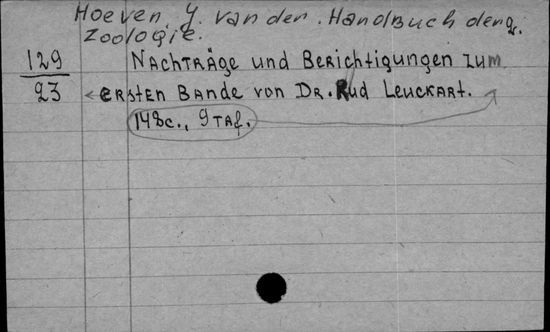 Hoeven, Y. van der. Handbuch der
Zoologie.
129 Nachträge und Berichtigungen zum
23 ersten Bande von Dr. Rud Leuckart.
148c., 9 Taf.